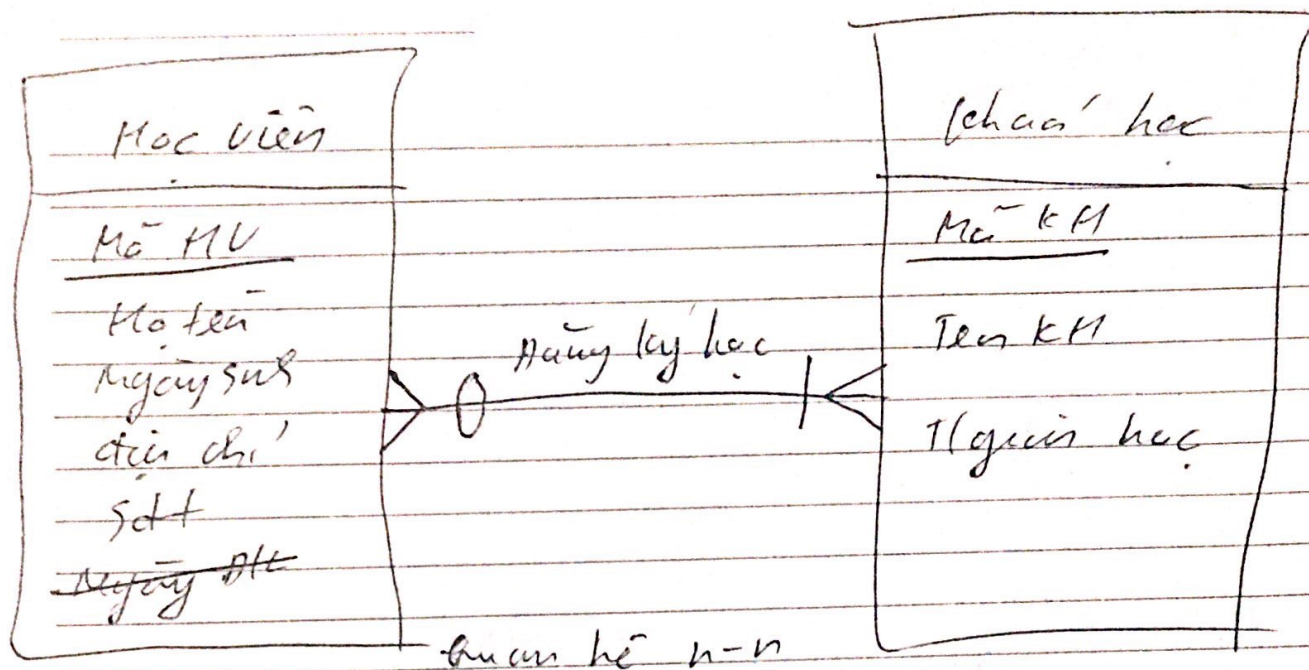 Học viên
Mã HV
Họ tên
Ngày sinh
địa chỉ
sđt
Ngày ĐK
Đăng ký học
Khoá học
Mã KH
Tên KH
TGian học
Quan hệ n-n